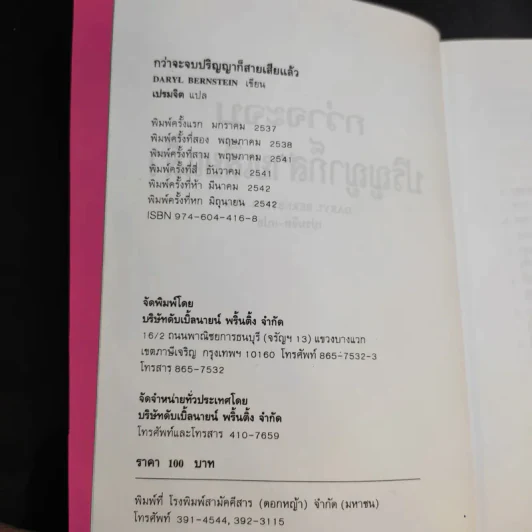 กว่าจะจบปริญญาก็สายเสียแล้ว
DARYL BERNSTEIN เขียน
เปรมจิต แปล
พิมพ์ครั้งแรก มกราคม 2537
พิมพ์ครั้งที่สอง พฤษภาคม 2538
พิมพ์ครั้งที่สาม พฤษภาคม 2541
พิมพ์ครั้งที่สี่ ธันวาคม 2541
พิมพ์ครั้งที่ห้า มีนาคม 2542
พิมพ์ครั้งที่หก มิถุนายน 2542
ISBN 974-604-416-8
จัดพิมพ์โดย
บริษัทดับเบิ้ลนายน์ พริ้นติ้ง จำกัด
16/2 ถนนพาณิชยการธนบุรี (จรัญฯ 13) แขวงบางแวก
เขตภาษีเจริญ กรุงเทพฯ 10160 โทรศัพท์ 865-7532-3
โทรสาร 865-7532
จัดจำหน่ายทั่วประเทศโดย
บริษัทดับเบิ้ลนายน์ พริ้นติ้ง จำกัด
โทรศัพท์และโทรสาร 410-7659
ราคา 100 บาท
พิมพ์ที่ โรงพิมพ์สามัคคีสาร (ดอกหญ้า) จำกัด (มหาชน)
โทรศัพท์ 391-4544, 392-3115